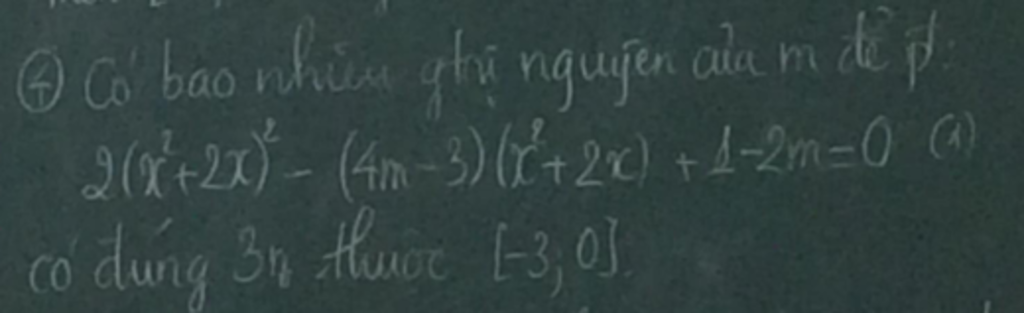 ④ Có bao nhiêu gtrị nguyên của m để pt:
2(x²+2x)² - (4m-3)(x²+2x) + 1-2m=0 (1)
có đúng 3n thuộc [-3; 0].